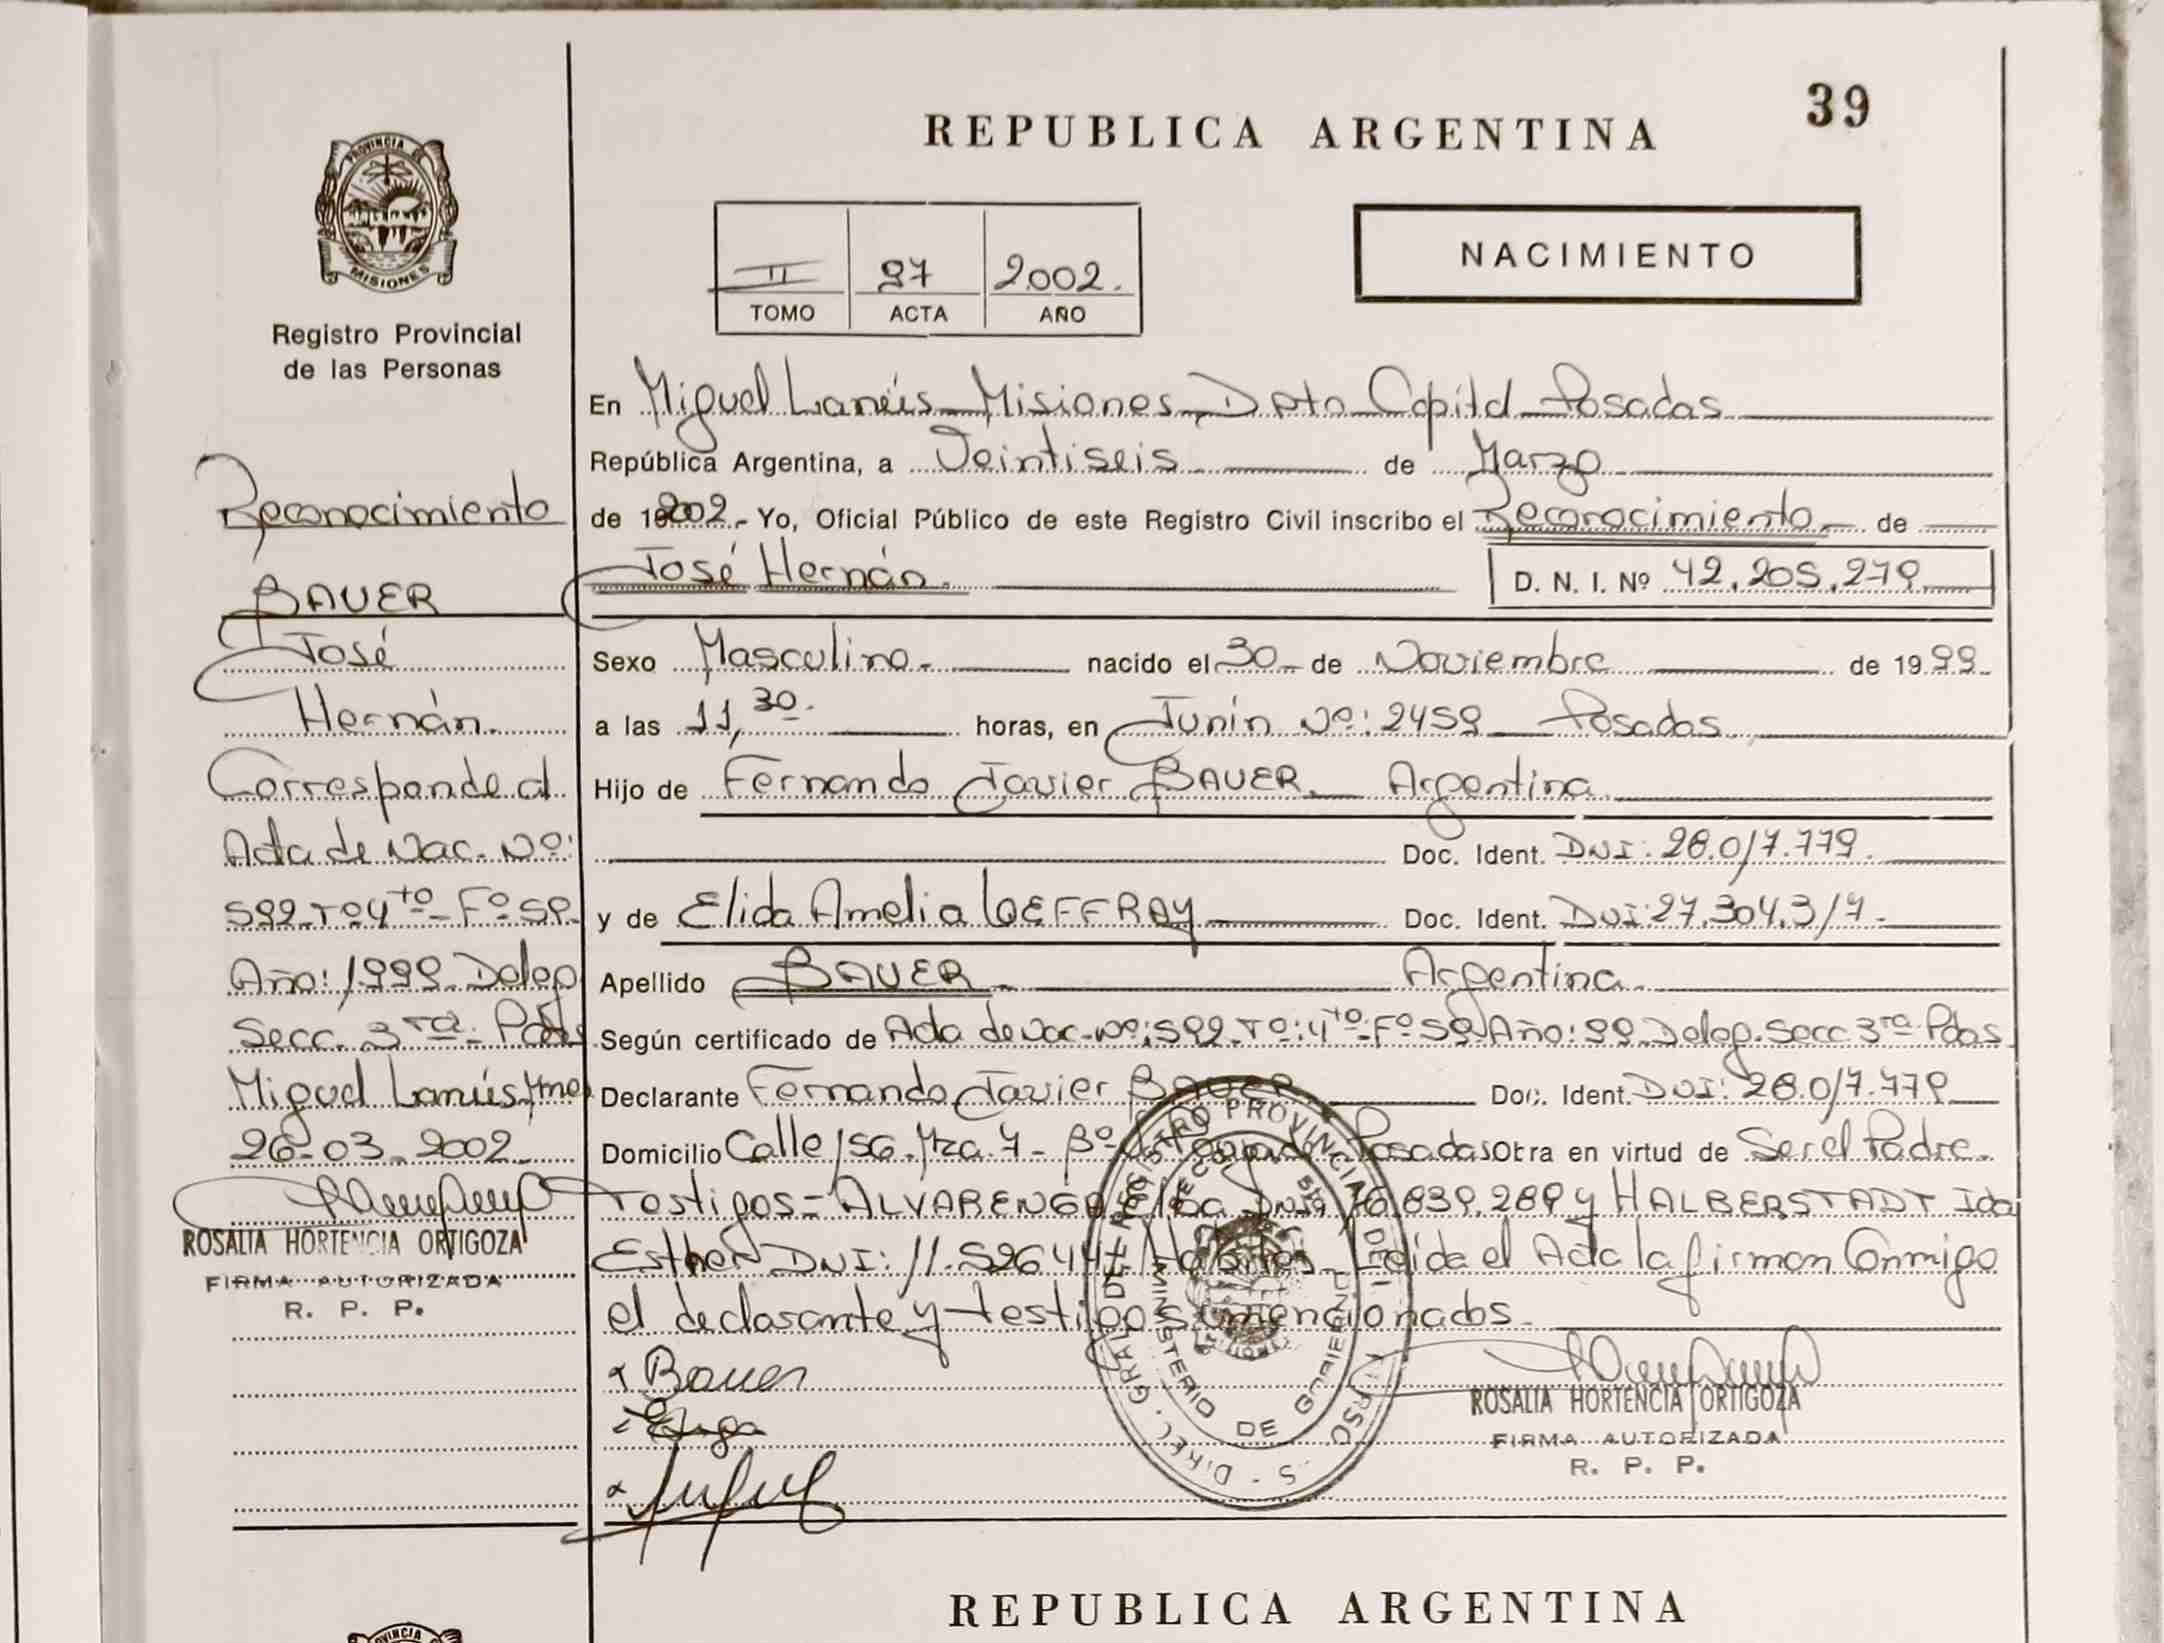 39
REPUBLICA ARGENTINA
PROVINCIA DE
MISIONES
Registro Provincial
de las Personas
II 97 2002.
TOMO ACTA AÑO
NACIMIENTO
Reconocimiento
BAUER
José
Hernán.
Corresponde al
Acta de Nac. Nº:
592-Tº4to-Fº59.
Año: 1999. Deleg
Secc. 3ra. Pdas
Miguel Lanús, Mnes
26-03-2002.
ROSALIA HORTENCIA ORTIGOZA
FIRMA AUTORIZADA
R. P. P.
En Miguel Lanús Misiones, Dpto Capital Posadas
República Argentina, a Veintiseis de Marzo
de 2002. Yo, Oficial Público de este Registro Civil inscribo el Reconocimiento de
José Hernán. D. N. I. Nº 42.205.279
Sexo Masculino. nacido el 30 de Noviembre de 1999.
a las 11,30. horas, en Junín Nº: 2459 Posadas
Hijo de Fernando Javier BAUER. Argentina.
Doc. Ident. DNI: 28.017.779.
y de Elida Amelia LOEFFRAY Doc. Ident. DNI: 27.304.317.
Apellido BAUER Argentina.
Según certificado de Acta de Nac. Nº: 592-Tº: 4to-Fº59 Año: 99. Deleg. Secc 3ra Pdas
Declarante Fernando Javier BAUER Doc. Ident. DNI: 28.017.779
Domicilio Calle 156. Mza. 7- Bº Posadas Obra en virtud de Ser el Padre.
Testigos= ALVARENGA Elba DNI 839.289 y HALBERSTADT Ida
Esther DNI: 11.52644 Hábiles Leída el Acta la firman Conmigo
el declarante y testigos mencionados.
Bauer
ROSALIA HORTENCIA ORTIGOZA
FIRMA AUTORIZADA
R. P. P.
MINISTERIO DE GOBIERNO
REPUBLICA ARGENTINA
PROVINCIA